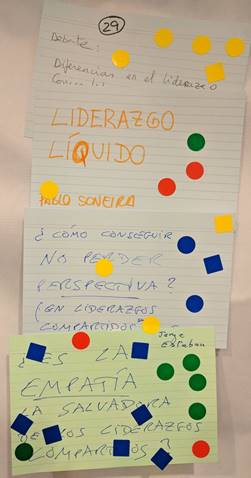 29
Debate:
Diferencias en el liderazgo
LIDERAZGO
LÍQUIDO
PABLO SONEIRA
¿CÓMO CONSEGUIR
NO PERDER
PERSPECTIVA?
(EN LIDERAZGOS
COMPARTIDOS
Jorge
Esteban
¿ES LA
EMPATÍA
LA SALVADORA
DE LOS LIDERAZGOS
COMPARTIDOS?